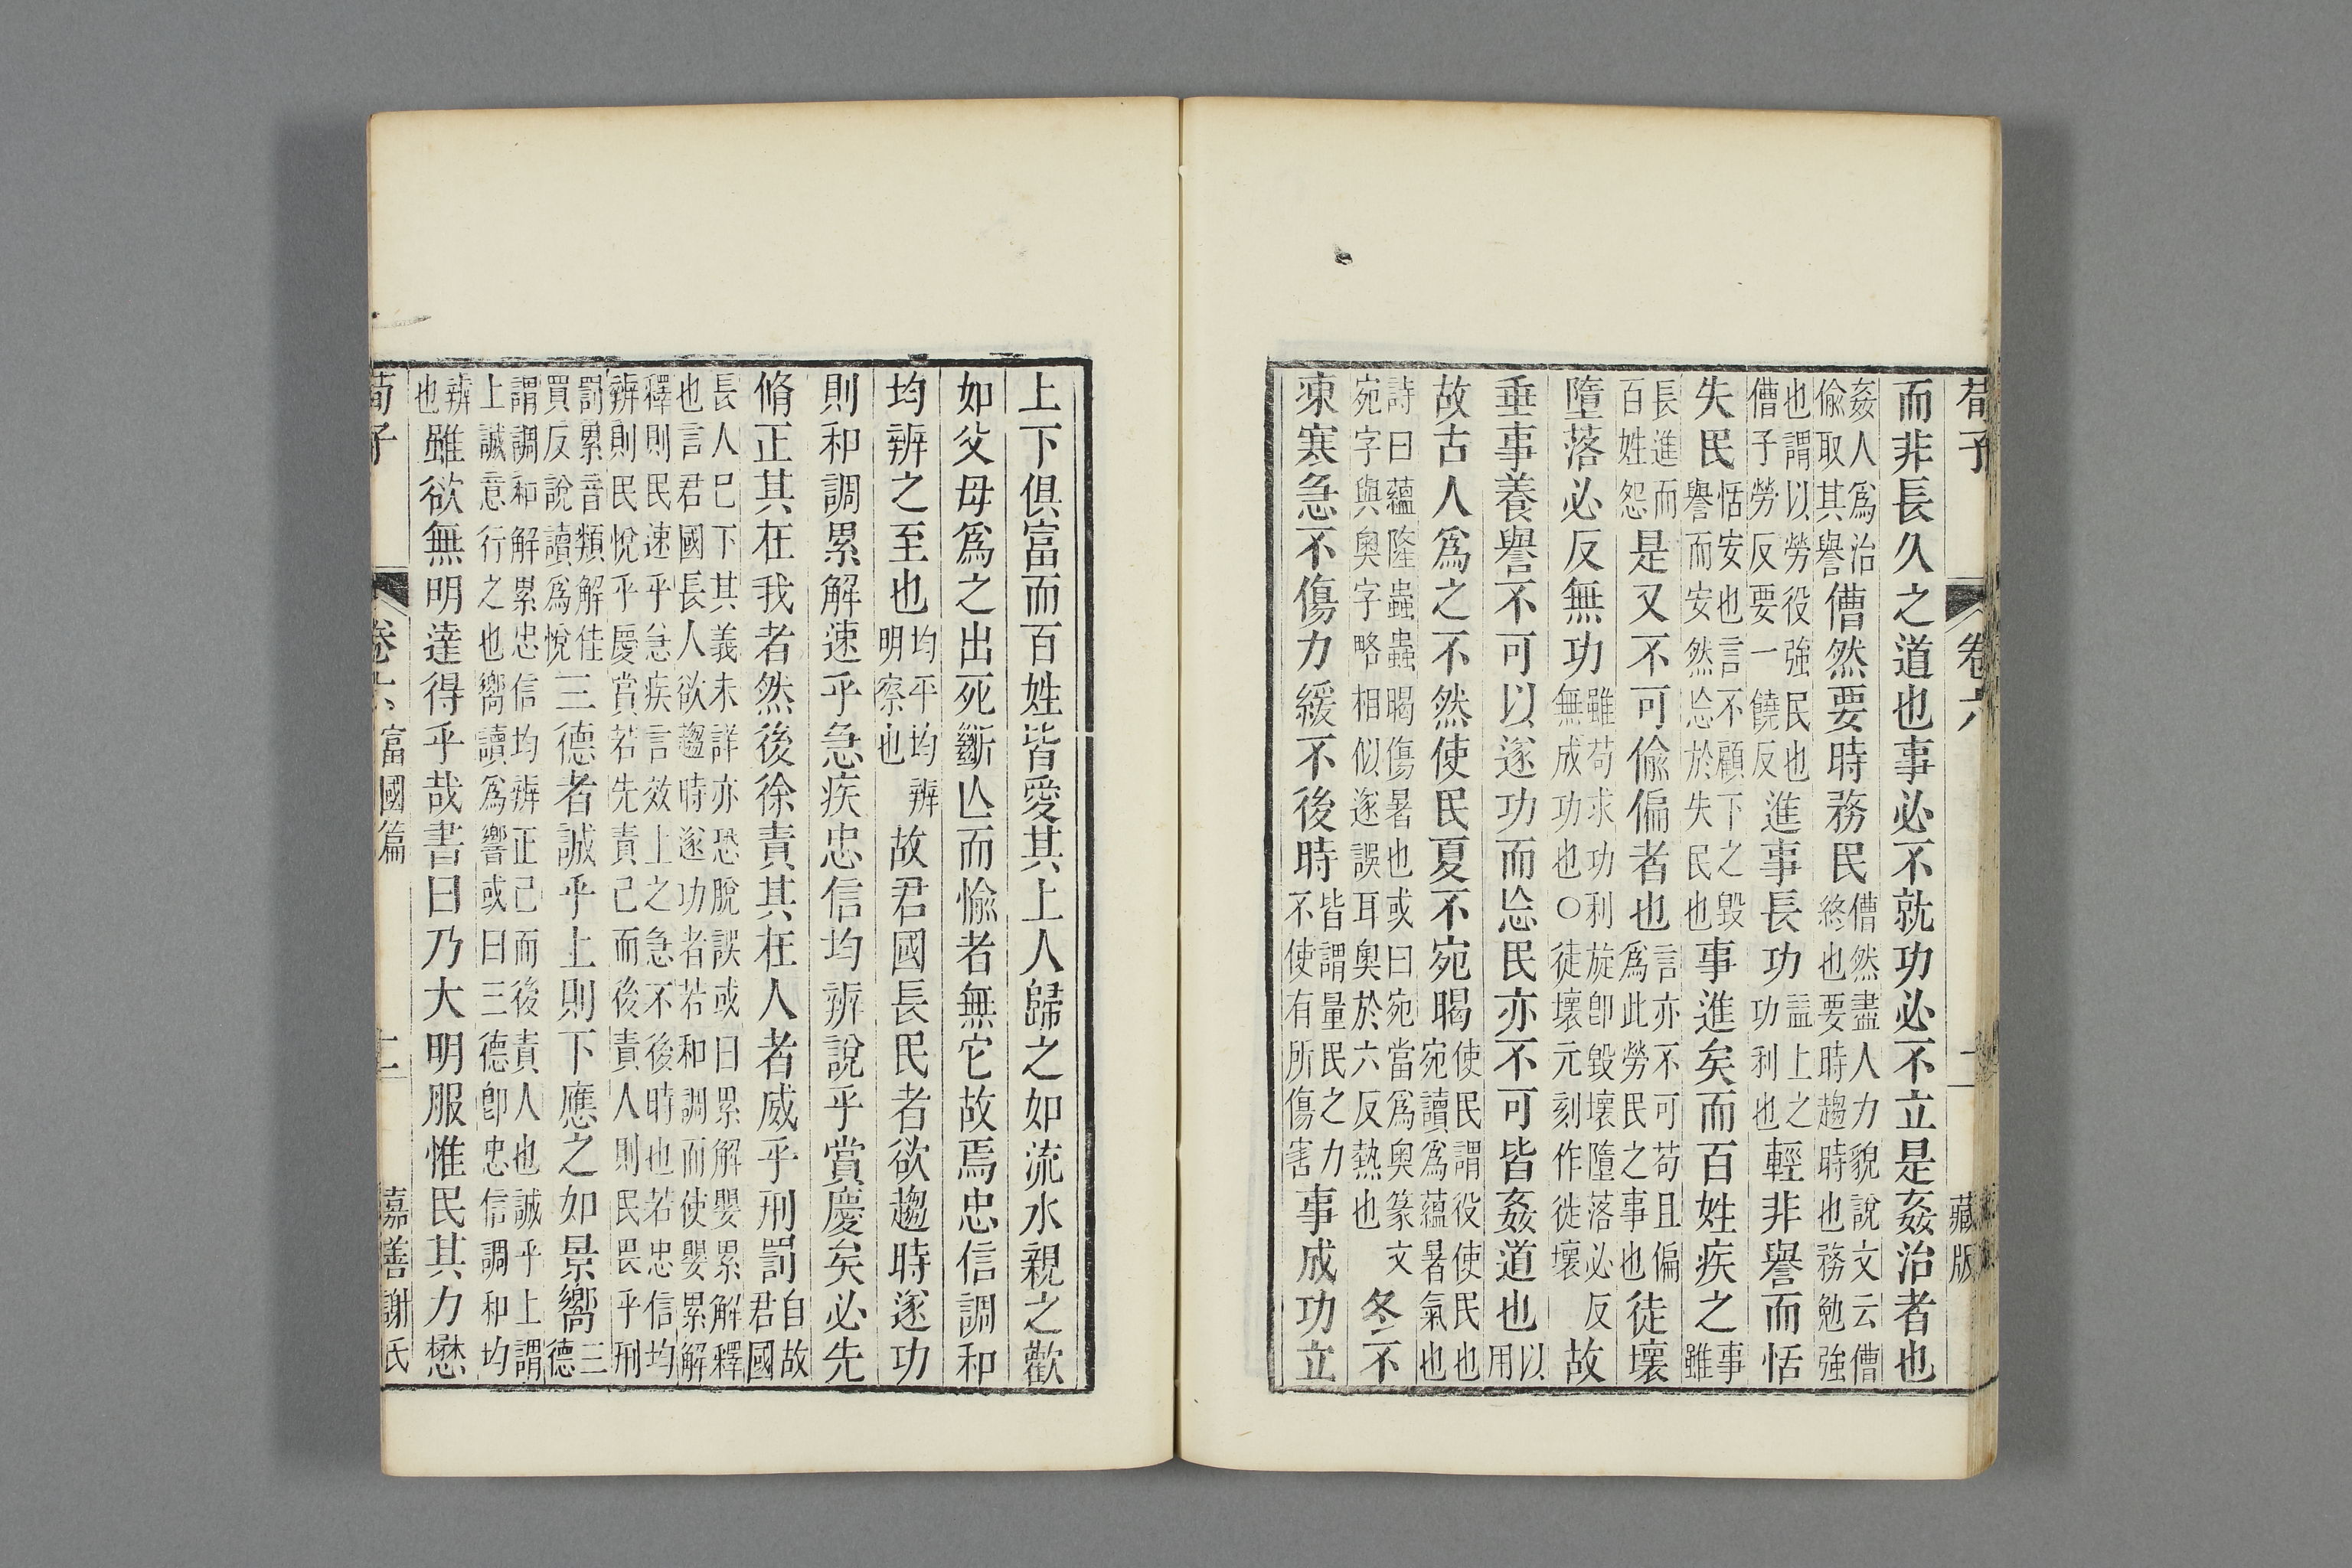 荀子 卷六 十一 藏版
而非長久之道也事必不就功必不立是姦治者也
姦人爲治偸取其譽僡然要時務民僡然盡人力貌說文云僡終也要時趨時也務勉強
也謂以勞役強民也僡子勞反要一饒反進事長功益上之功利也輕非譽而恬
失民恬安也言不顧下之毀譽而安然忩於失民也事進矣而百姓疾之事雖
長進而百姓怨是又不可偷偏者也言亦不可苟且偏爲此勞民之事也徒壞
墮落必反無功雖苟求功利旋卽毀壞墮落必反無成功也○徒壞元刻作徙壞故
垂事養譽不可以遂功而忩民亦不可皆姦道也以用
故古人爲之不然使民夏不宛暍使民謂役使民也宛讀爲蘊暑氣也
詩曰蘊隆蟲蟲暍傷暑也或曰宛當爲奧篆文宛字與奧字略相似遂誤耳奧於六反熱也冬不
凍寒急不傷力緩不後時皆謂量民之力不使有所傷害事成功立
上下俱富而百姓皆愛其上人歸之如流水親之歡
如父母爲之出死斷亾而愉者無它故焉忠信調和
均辨之至也均平均辨明察也故君國長民者欲趨時遂功
則和調累解速乎急疾忠信均辨說乎賞慶矣必先
脩正其在我者然後徐責其在人者威乎刑罰自故君國
長人巳下其義未詳亦恐脫誤或曰累解嬰累解釋也言君國長人欲趨時遂功者若和調而使嬰累解
釋則民速乎急疾言效上之急不後時也若忠信均辨則民悅乎慶賞若先責己而後責人則民畏乎刑
罰累音類解佳買反說讀爲悅三德者誠乎上則下應之如景嚮三德
謂調和解累忠信均辨正己而後責人也誠乎上謂上誠意行之也嚮讀爲響或曰三德卽忠信調和均
辨也雖欲無明達得乎哉書曰乃大明服惟民其力懋
荀子 卷六 富國篇 十二 嘉善謝氏